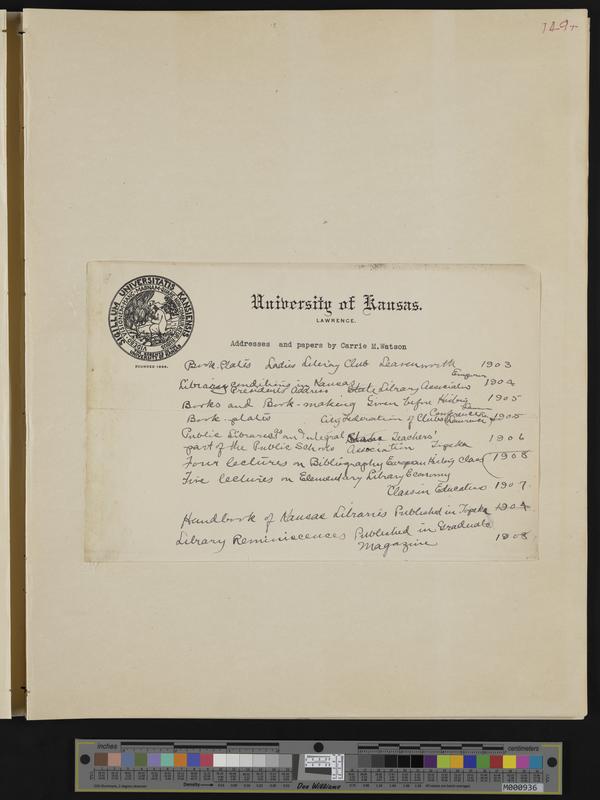 149+
SIGILLUM UNIVERSITATIS KANSIENSIS
FOUNDED 1866.
University of Kansas.
LAWRENCE.
Addresses and papers by Carrie M. Watson
Book-plates Ladies Literary Club Leavenworth 1903
Emporia
Library conditions in Kansas
Presidents Address State Library Association 1904
Books and Book-making Given before History 1905
Book-plates City Federation of Clubs Lawrence 1905
Public Libraries as an Integral State Teachers'
part of the Public Schools Association Topeka 1906
Four lectures on Bibliography European History Class 1908
Five lectures on Elementary Library Economy
Class in Education 1907.
Handbook of Kansas Libraries Published in Topeka
Library Reminiscences Published in Graduate
Magazine 1908
inches
centimeters
Density
Don Williams
M000936